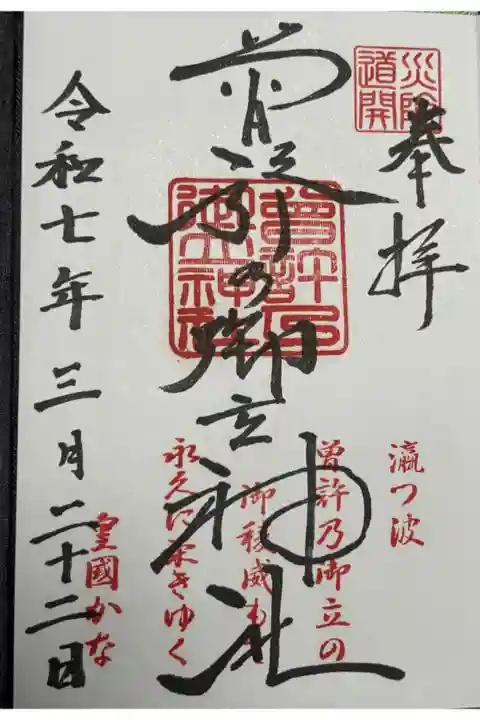 奉拝
道開
曽許乃御立神社
瀛つ波
曽許乃御立の
御稜威も
永久に栄きゆく
皇國かな
令和七年三月二十二日